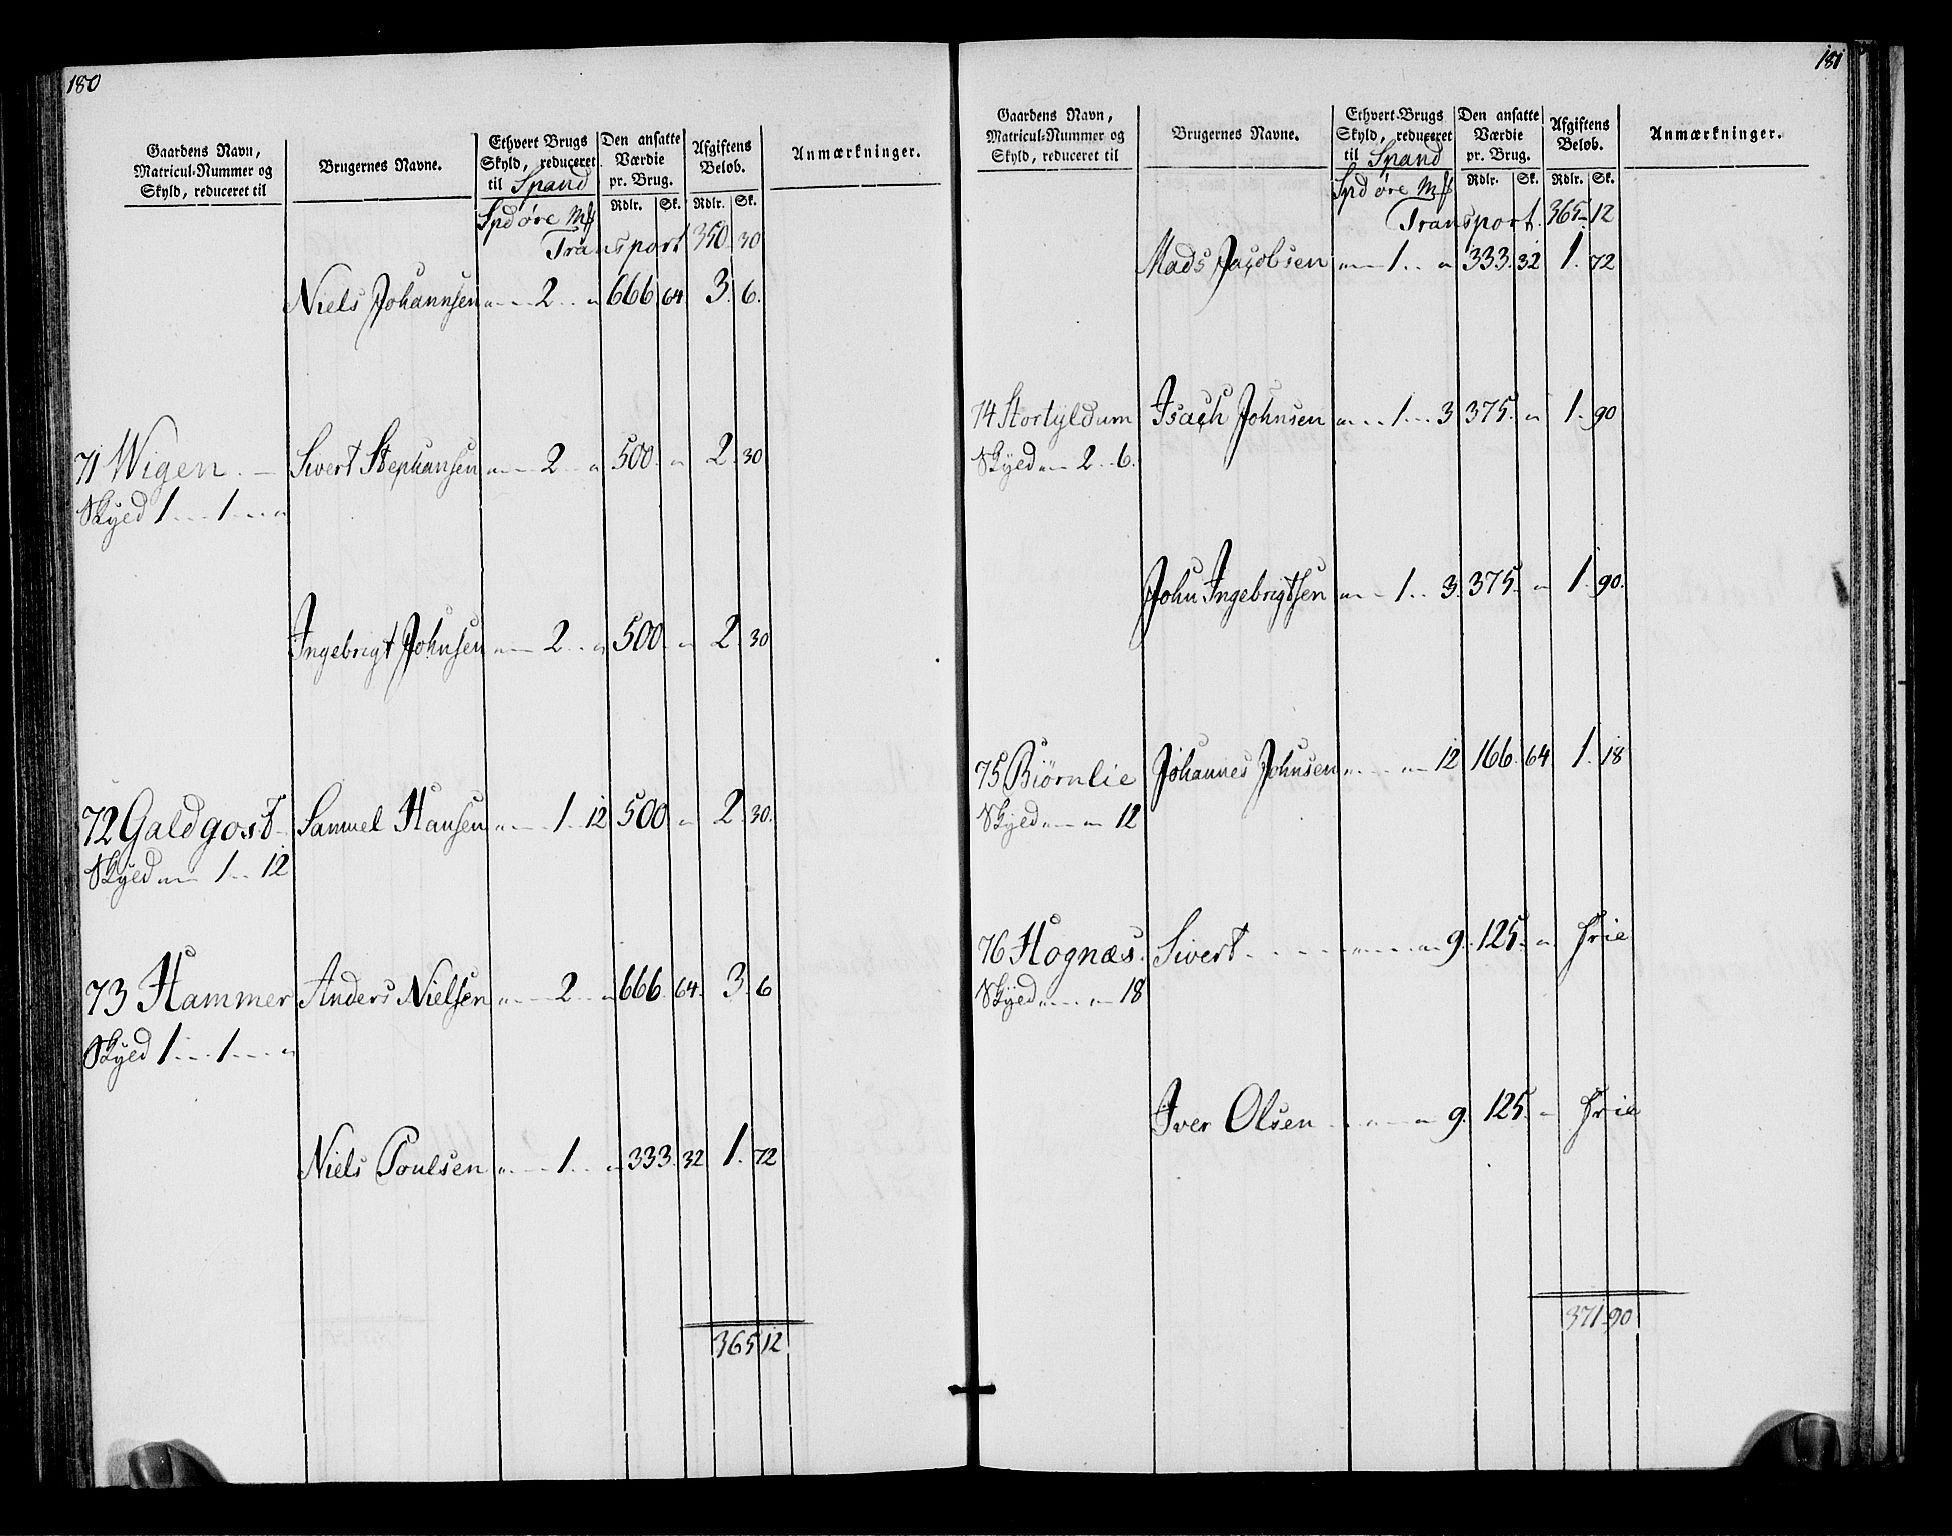 180
Gaardens Navn, Matricul-Nummer og Skyld, reduceret til | Brugernes Navne. | Ethvert Brugs Skyld, reduceret til Spand | Den ansatte Værdie pr. Brug. | Afgiftens Beløb. | Anmærkninger.
Spd øre Mk | Rdlr. | Sk. | Rdlr. | Sk.
Transport 350 30
Niels Johannsen „ — 2 .. „ 666 64 3. 6.
71 Wigen. — Sivert Stephansen „ — 2 .. „ 500. „ 2. 30
Skyld 1 ... 1 ... „
Ingebrigt Johnsen „ — 2 .. „ 500. „ 2 30
72 Galdgost — Samuel Hansen „ — 1 .. 12 500 „ 2 30.
Skyld „ — 1 .. 12
73 Hammer Anders Nielsen „ — 2 .. „ 666. 64. 3. 6
Skyld 1 ... 1 ... „
Niels Poulsen „ — 1 .. „ 333. 32 1. 72
365 12
181
Gaardens Navn, Matricul-Nummer og Skyld, reduceret til | Brugernes Navne. | Ethvert Brugs Skyld, reduceret til Spand | Den ansatte Værdie pr. Brug. | Afgiftens Beløb. | Anmærkninger.
Spd øre Mk | Rdlr. | Sk. | Rdlr. | Sk.
Transport. 365. 12
Mads Jacobsen „ — 1 .. „ 333. 32 1. 72
74 Stortyldum Isach Johnsen „ .. 1 .. 3 375. „ 1. 90
Skyld „ — 2 .. 6.
John Ingebrigtsen „ — 1 .. 3. 375. „ 1. 90.
75 Biørnlie Johannes Johnsen „ ... „ 12 166. 64 1. 18
Skyld „ — „ 12
76 Hognæs. Sivert . . . . „ — „ 9. 125. „ frie
Skyld „ — „ 18
Iver Olsen .. „ — „ 9. 125. „ frie
371 90